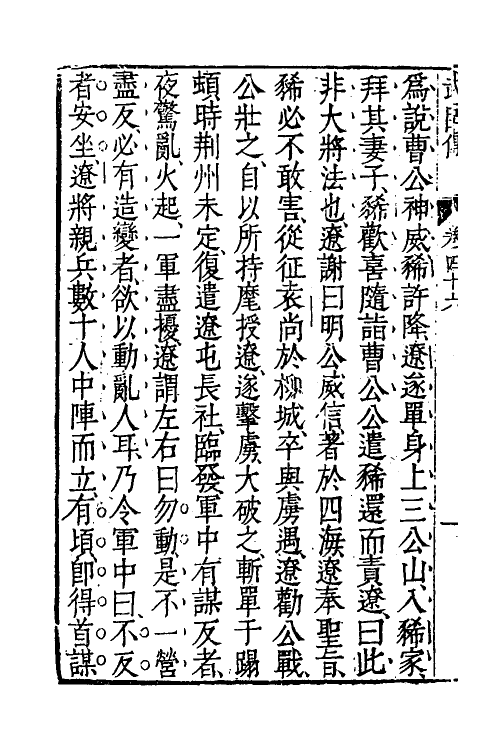 爲說曹公神威豨許降遼遂單身上三公山入豨家
拜其妻子豨歡喜隨詣曹公公遣豨還而責遼曰此
非大將法也遼謝曰明公威信著於四海遼奉聖旨
豨必不敢害從征袁尚於柳城卒與虜遇遼勸公戰
公壯之自以所持麾授遼遂擊虜大破之斬單于蹋
頓時荆州未定復遣遼屯長社臨發軍中有謀反者
夜驚亂火起一軍盡擾遼謂左右曰勿動是不一營
盡反必有造變者欲以動亂人耳乃令軍中曰不反
者安坐遼將親兵數十人中陣而立有頃卽得首謀